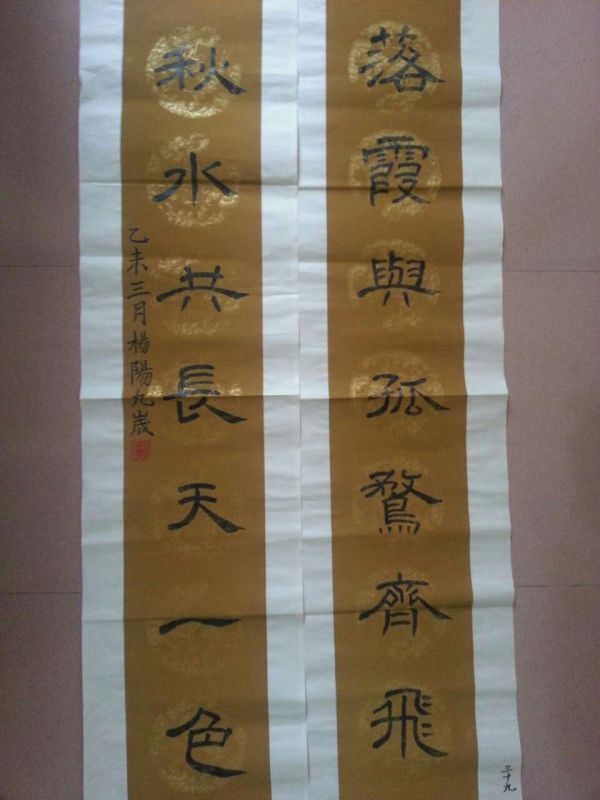 落霞與孤鶩齊飛
秋水共長天一色
乙未三月楊陽九歲
三十九